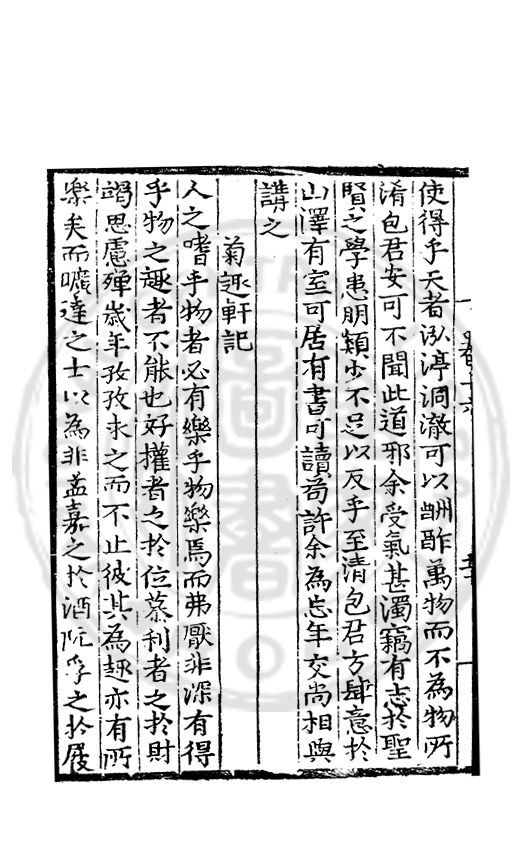 使得乎天者泓渟洞澈可以酬酢萬物而不為物所
淆包君安可不聞此道邪余受氣甚濁竊有志於聖
賢之學患朋類少不足以反乎至清包君方肆意於
山澤有室可居有書可讀茍許余為忘年交尚相與
講之
菊趣軒記
人之嗜乎物者必有樂乎物樂焉而弗厭非深有得
乎物之趣者不能也好權者之於位慕利者之於財
竭思慮殫歲年孜孜求之而不止彼其為趣亦有所
樂矣而曠達之士以為非孟嘉之於酒阮孚之於屐